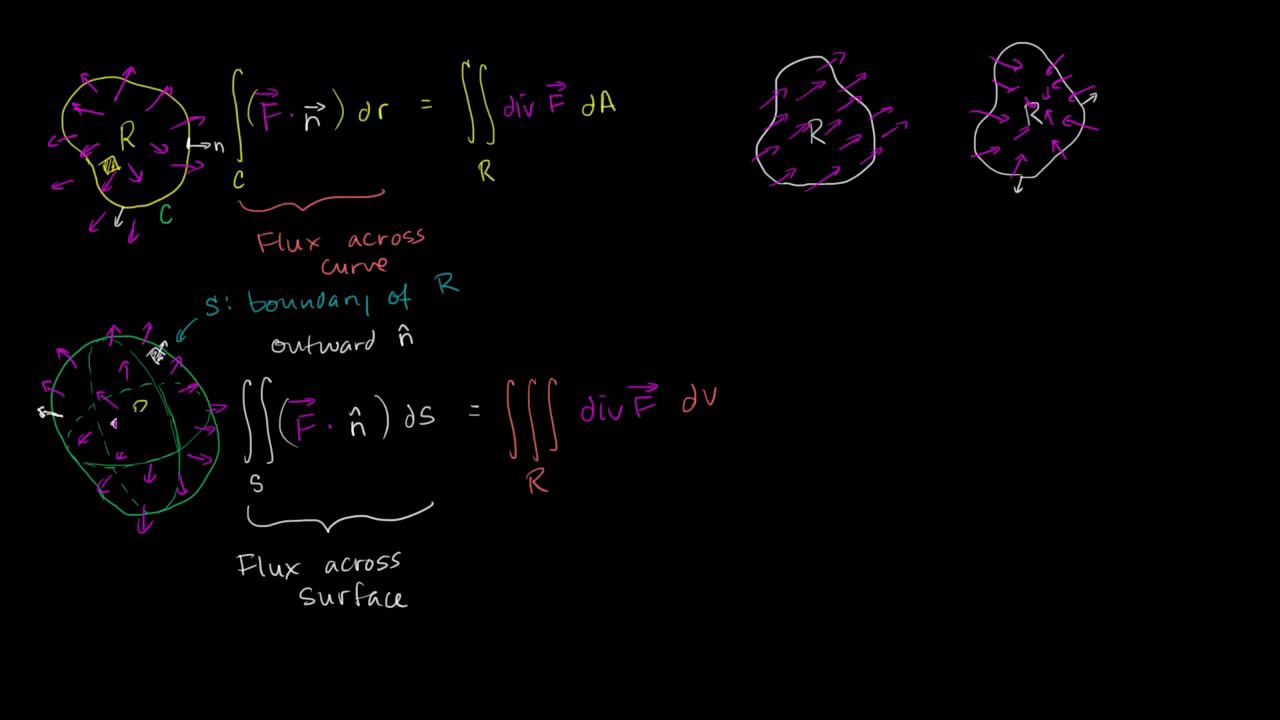 R
n
C
∫_C (F⃗ · n⃗) dr = ∬_R div F⃗ dA
Flux across
curve
R
R
S: boundary of R
outward n̂
∬_S (F⃗ · n̂) dS = ∭_R div F⃗ dV
Flux across
surface